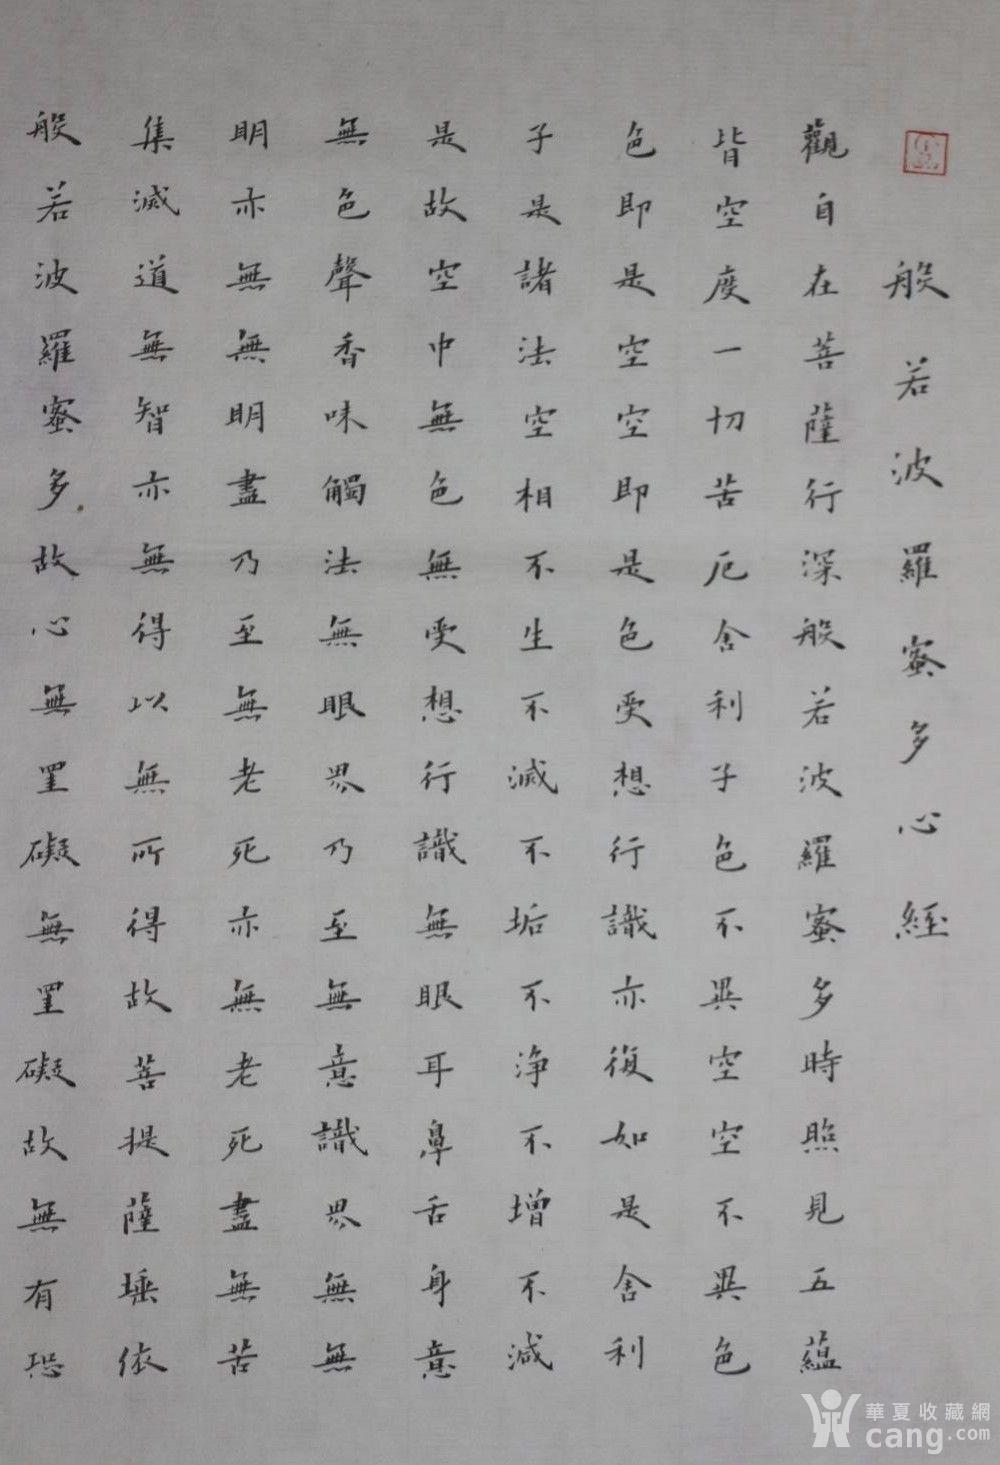 般若波羅蜜多心經
觀自在菩薩行深般若波羅蜜多時照見五蘊
皆空度一切苦厄舍利子色不異空空不異色
色即是空空即是色受想行識亦復如是舍利
子是諸法空相不生不滅不垢不淨不增不減
是故空中無色無受想行識無眼耳鼻舌身意
無色聲香味觸法無眼界乃至無意識界無無
明亦無無明盡乃至無老死亦無老死盡無苦
集滅道無智亦無得以無所得故菩提薩埵依
般若波羅蜜多故心無罣礙無罣礙故無有恐
華夏收藏網
cang.com